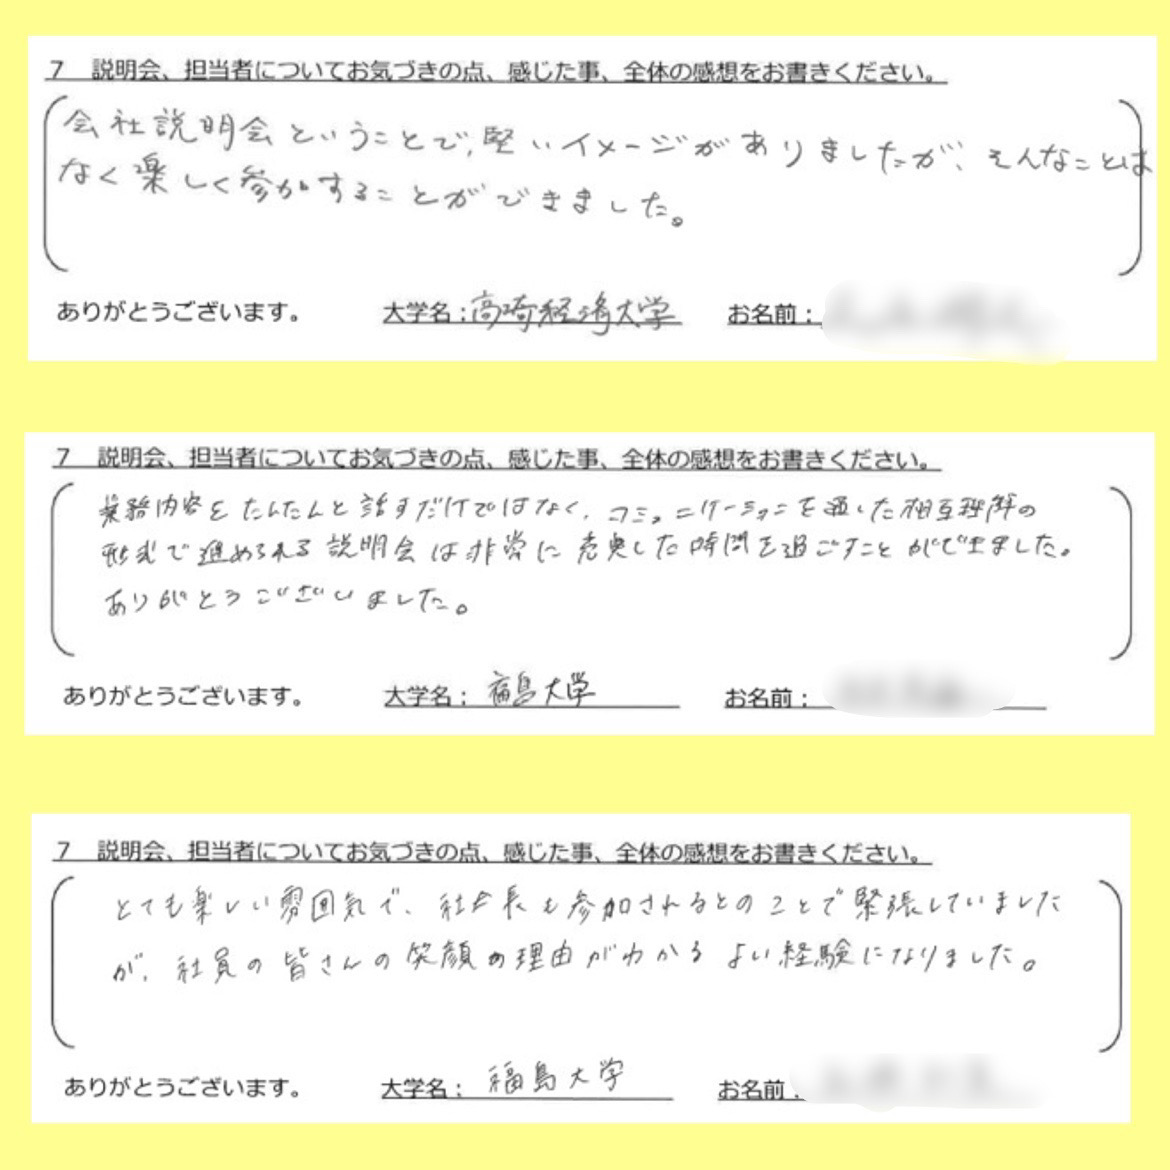 7 説明会、担当者についてお気づきの点、感じた事、全体の感想をお書きください。
会社説明会ということで、堅いイメージがありましたが、そんなことは
なく楽しく参加することができました。
ありがとうございます。 大学名：高崎経済大学 お名前：
7 説明会、担当者についてお気づきの点、感じた事、全体の感想をお書きください。
業務内容をたんたんと話すだけではなく、コミュニケーションを通した相互理解の
形式で進められる説明会は非常に充実した時間を過ごすことができました。
ありがとうございました。
ありがとうございます。 大学名：福島大学 お名前：
7 説明会、担当者についてお気づきの点、感じた事、全体の感想をお書きください。
とても楽しい雰囲気で、社長も参加されるとのことで緊張していました
が、社員の皆さんの笑顔の理由がわかるよい経験になりました。
ありがとうございます。 大学名：福島大学 お名前：